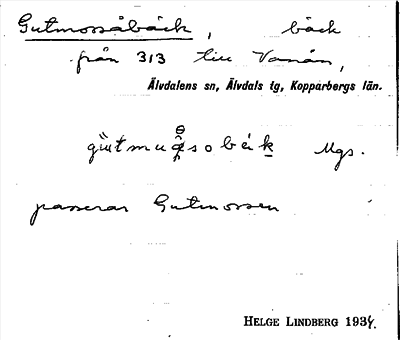 Gutmossåbäck, bäck
från 313 till Vanån,
Älvdalens sn, Älvdals tg, Kopparbergs län.
Mgs.
passerar Gutmossen
HELGE LINDBERG 1934.